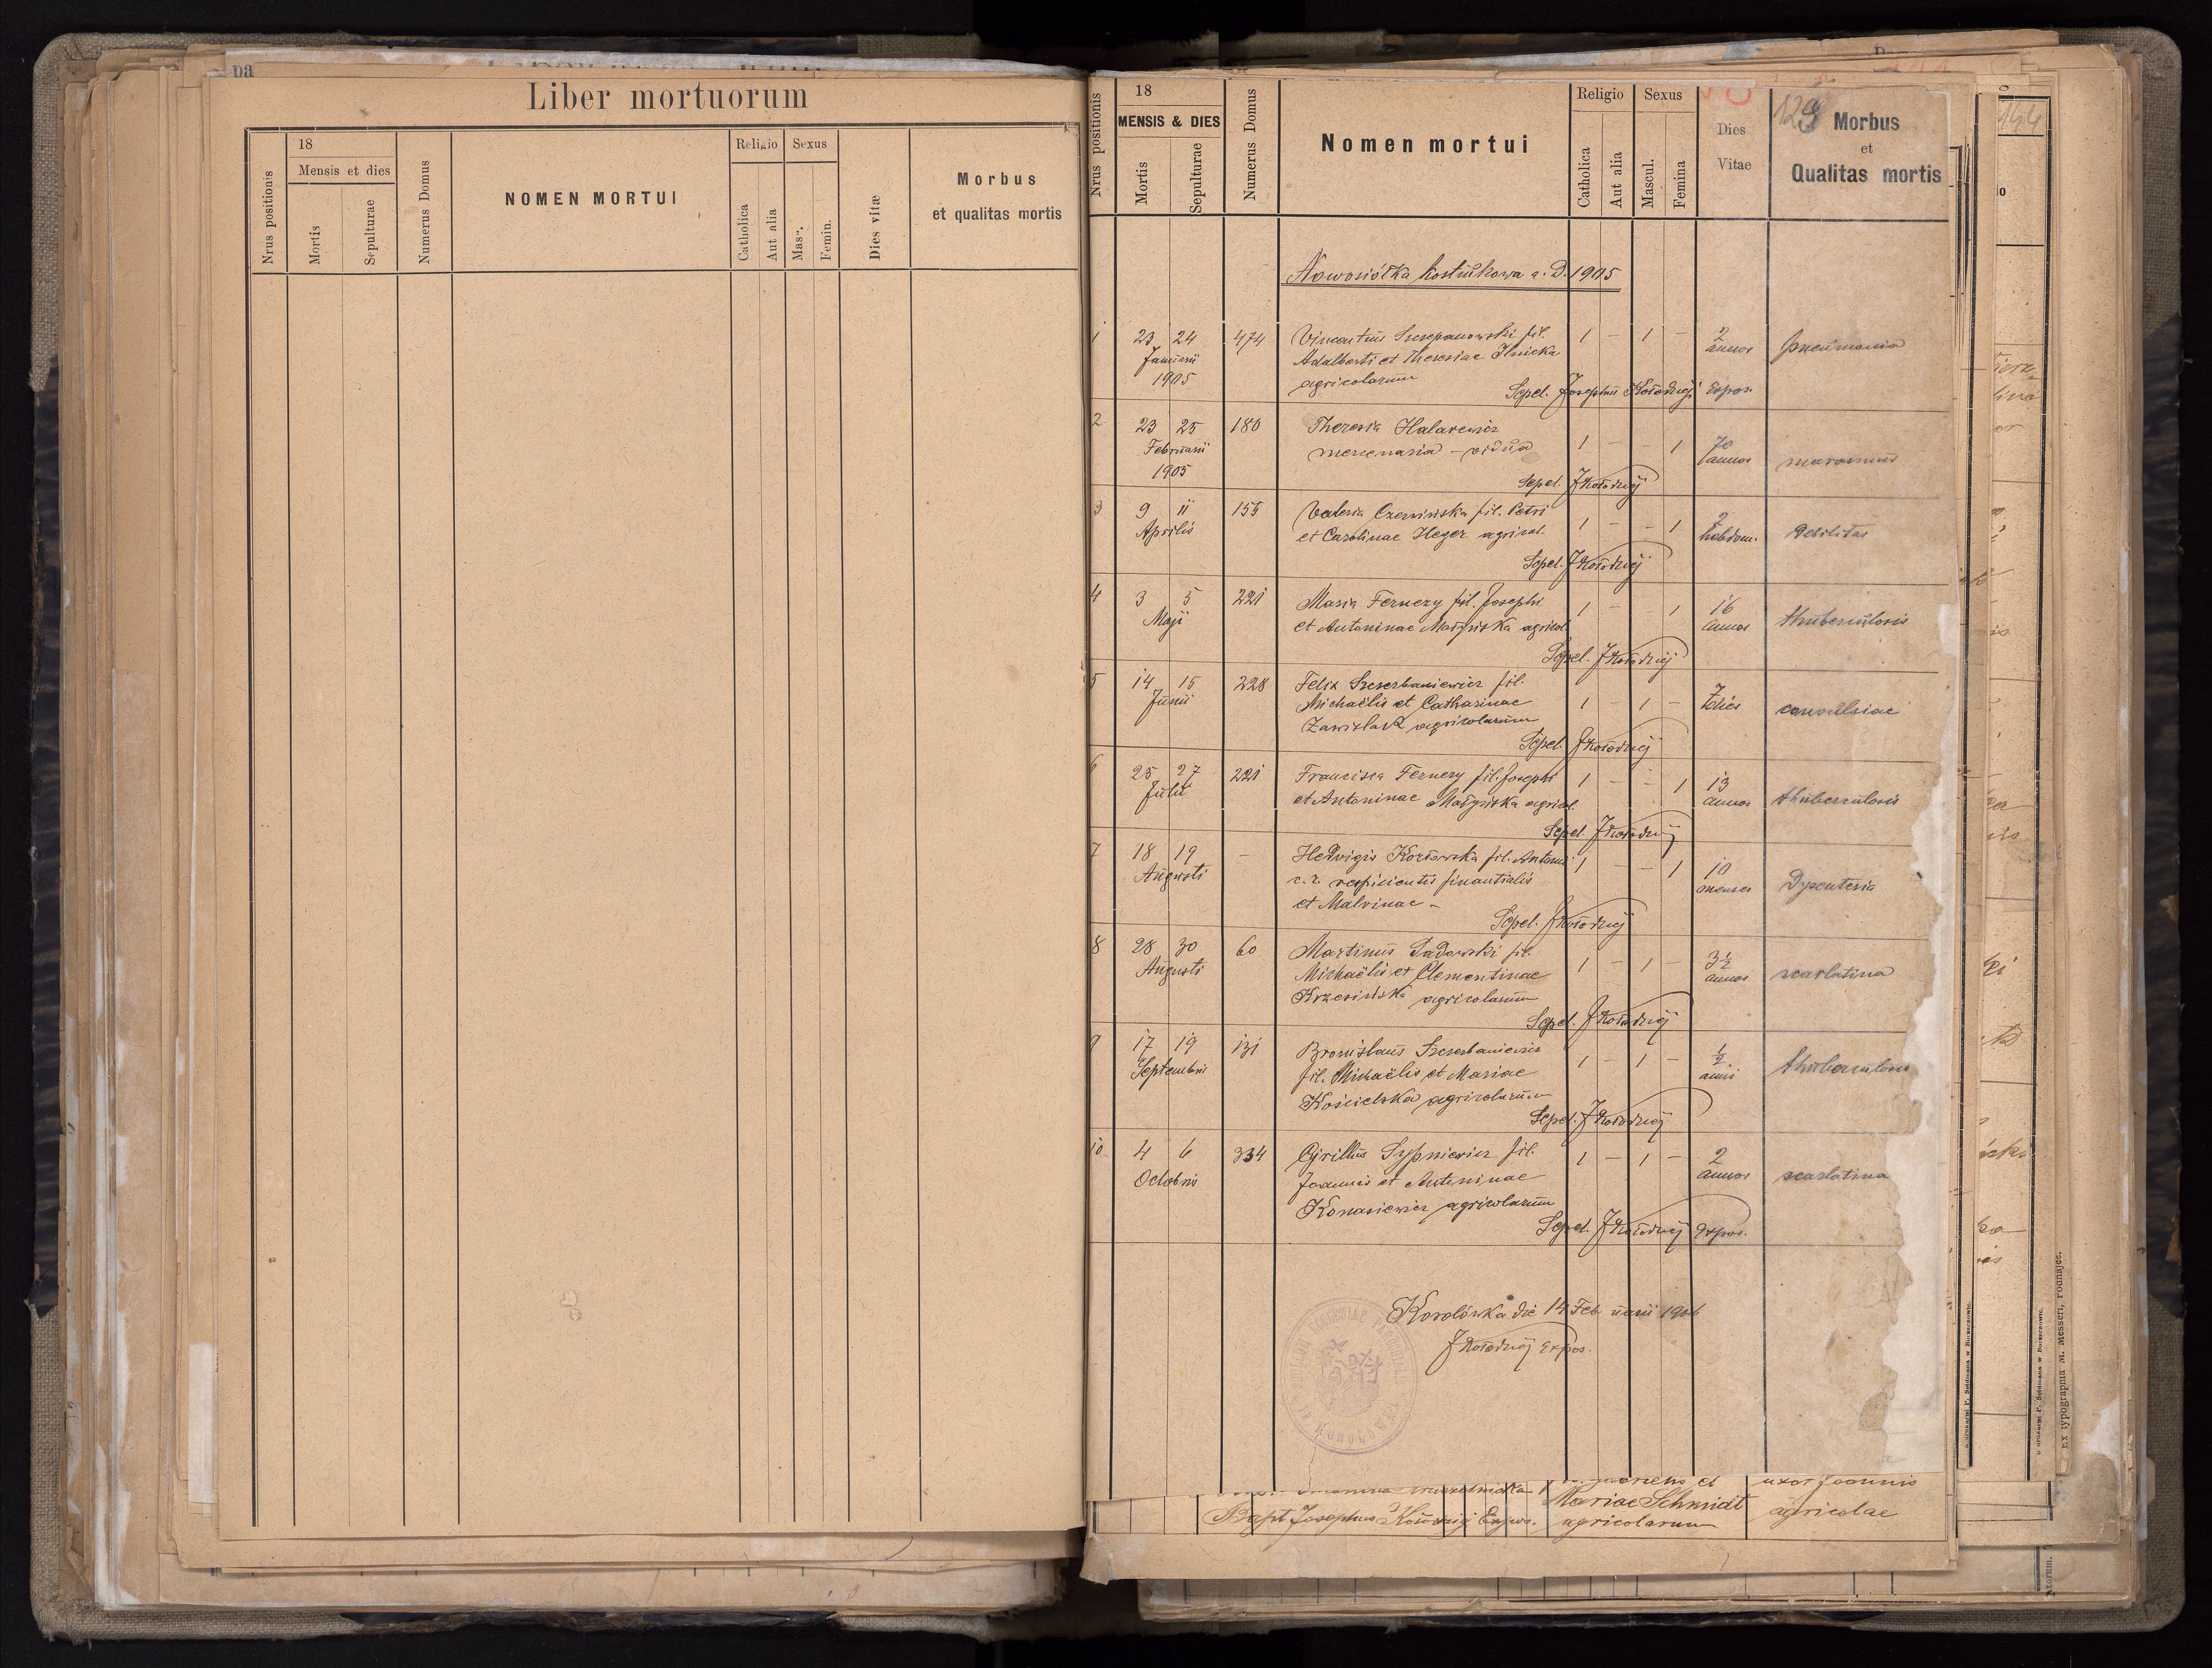 pa
Liber mortuorum
Nrus positionis
18
Mensis et dies
Mortis
Sepulturae
Numerus Domus
NOMEN MORTUI
Religio
Catholica
Aut alia
Sexus
Masc.
Femin.
Dies vitæ
Morbus
et qualitas mortis
Nrus positionis
18
MENSIS & DIES
Mortis
Sepulturae
Numerus Domus
Nomen mortui
Religio
Catholica
Aut alia
Sexus
Mascul.
Femina
Dies
Vitae
129
Morbus
et
Qualitas mortis
144
Nowosiółka kostiukowa a. D. 1905
1 23 24 474 Vincentius Szczepanowski fil. 1 — 1 — 2
Januarii Adalberti et Theresiae Ilnicka annos pneumonia
1905 agricolarum
Sepel. Josephus Kołodziej Expos.
2 23 25 180 Theresia Halarewicz
Februarii mercenaria – vidua 1 — — 1 70 annos marasmus
1905
Sepel. JKołodziej
3 9 11 155 Valeria Czerwińska fil. Petri 1 — — 1 2
Aprilis et Carolinae Heger agricol. hebdom. Debilitas
Sepel. JKołodziej
4 3 5 221 Maria Fernezy fil. Josephi 1 — — 1 16
Maji et Antoninae Małyńska agricol. annos thuberculosis
Sepel. JKołodziej
5 14 15 228 Felix Szczerbaniewicz fil.
Junii Michaëlis et Catharinae 1 — 1 — 7 dies convulsiae
Zawiślak agricolarum
Sepel. JKołodziej
6 25 27 221 Francisca Fernezy fil. Josephi 1 — — 1 13
Julii et Antoninae Małyńska agricol. annos thuberculosis
Sepel. JKołodziej
7 18 19 — Hedvigis Kozłowska fil. Antonii 1 — 1 10
Augusti c. r. respicientis finantialis menses Dysenteria
et Malvinae –
Sepel. JKołodziej
8 28 30 60 Martinus Sadowski fil.
Augusti Michaëlis et Clementinae 1 — 1 — 3½ annos scarlatina
Krzesińska agricolarum
Sepel. JKołodziej
9 17 19 131 Bronislaus Szczerbaniewicz 1 — 1 — ½
Septembris fil. Michaëlis et Mariae anni thuberculosis
Kościelska agricolarum
Sepel. JKołodziej
10 4 6 334 Cyrillus Sypniewicz fil. 1 — 1 — 2
Octobris Joannis et Antoninae annos scarlatina
Konasiewicz agricolarum
Sepel. JKołodziej Expos.
Korolówka die 14 Februarii 1906
JKołodziej Expos.
uxor Joannis
Mariae Schmidt agricolae
Bapt Josephus Kołodziej Expos. agricolarum
Ex typographia M. Messeri, rodnajec.